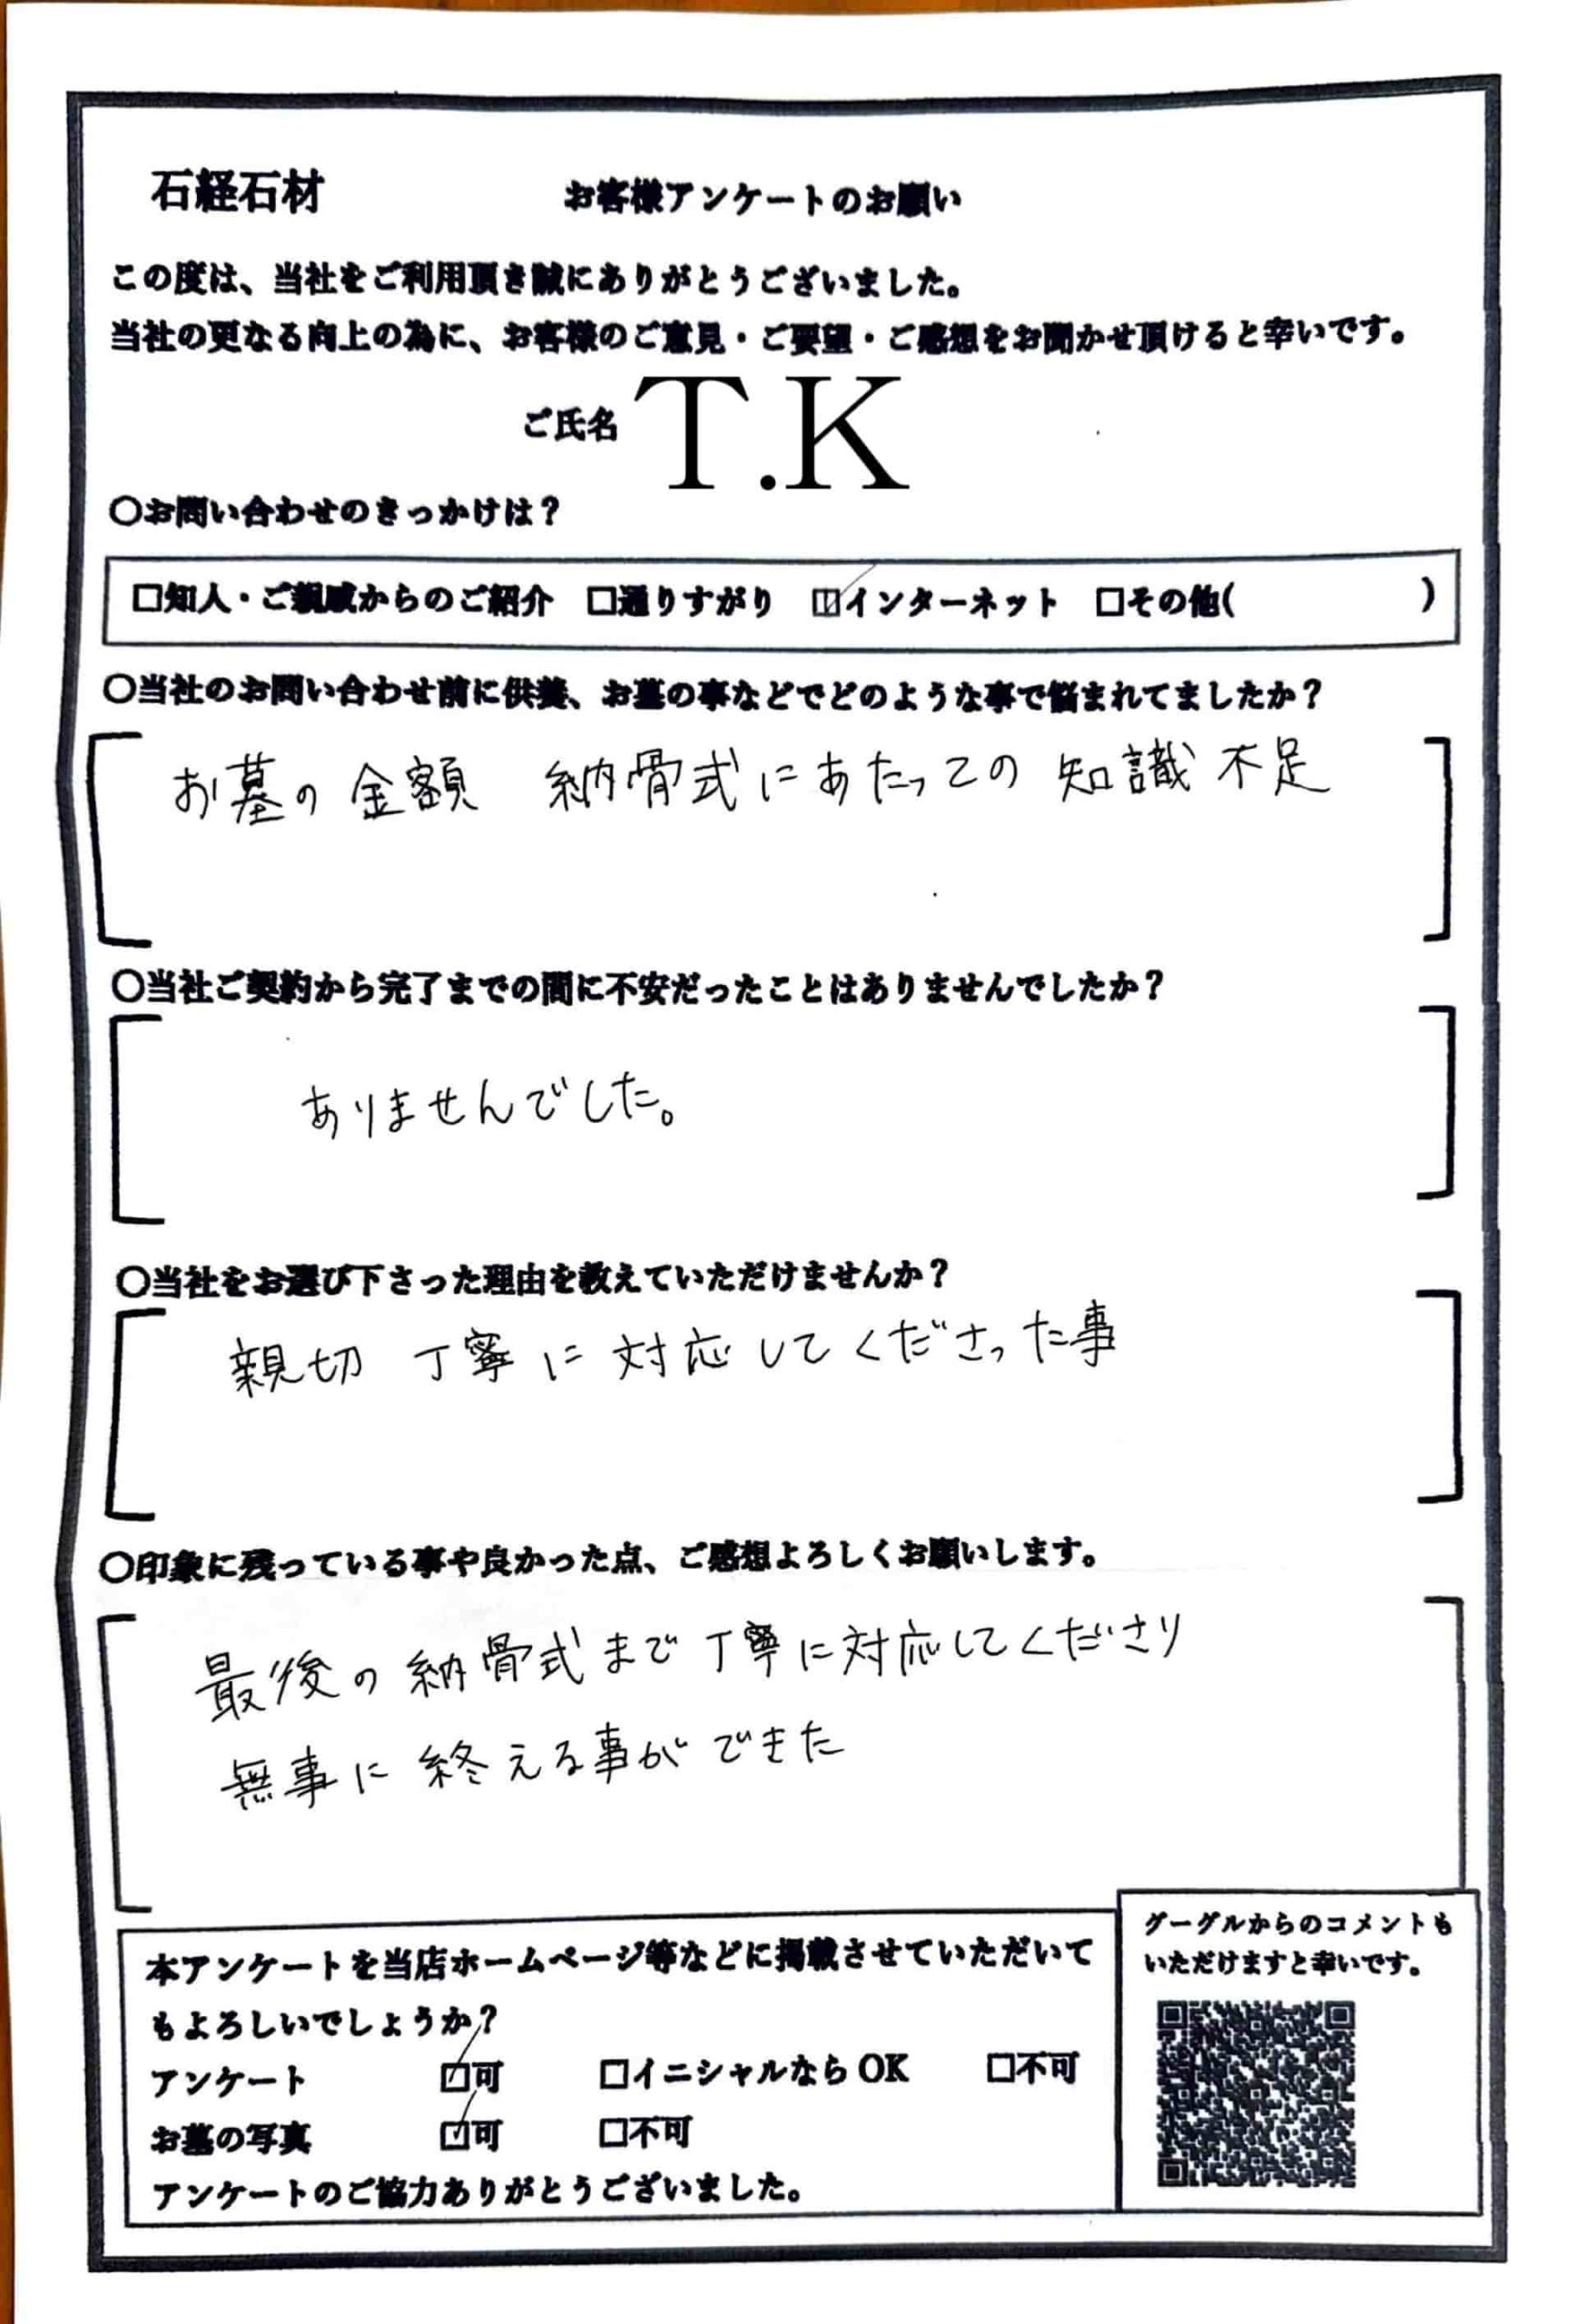 石経石材 お客様アンケートのお願い
この度は、当社をご利用頂き誠にありがとうございました。
当社の更なる向上の為に、お客様のご意見・ご要望・ご感想をお聞かせ頂けると幸いです。
ご氏名 T.K
○お問い合わせのきっかけは？
□知人・ご親戚からのご紹介 □通りすがり ☑インターネット □その他( )
○当社のお問い合わせ前に供養、お墓の事などでどのような事で悩まれてましたか？
お墓の金額 納骨式にあたっての知識不足
○当社ご契約から完了までの間に不安だったことはありませんでしたか？
ありませんでした。
○当社をお選び下さった理由を教えていただけませんか？
親切 丁寧に対応してくださった事
○印象に残っている事や良かった点、ご感想よろしくお願いします。
最後の納骨式まで丁寧に対応してくださり
無事に終える事ができた
本アンケートを当店ホームページ等などに掲載させていただいて
もよろしいでしょうか？
アンケート ☑可 □イニシャルならOK □不可
お墓の写真 ☑可 □不可
アンケートのご協力ありがとうございました。
グーグルからのコメントも
いただけますと幸いです。